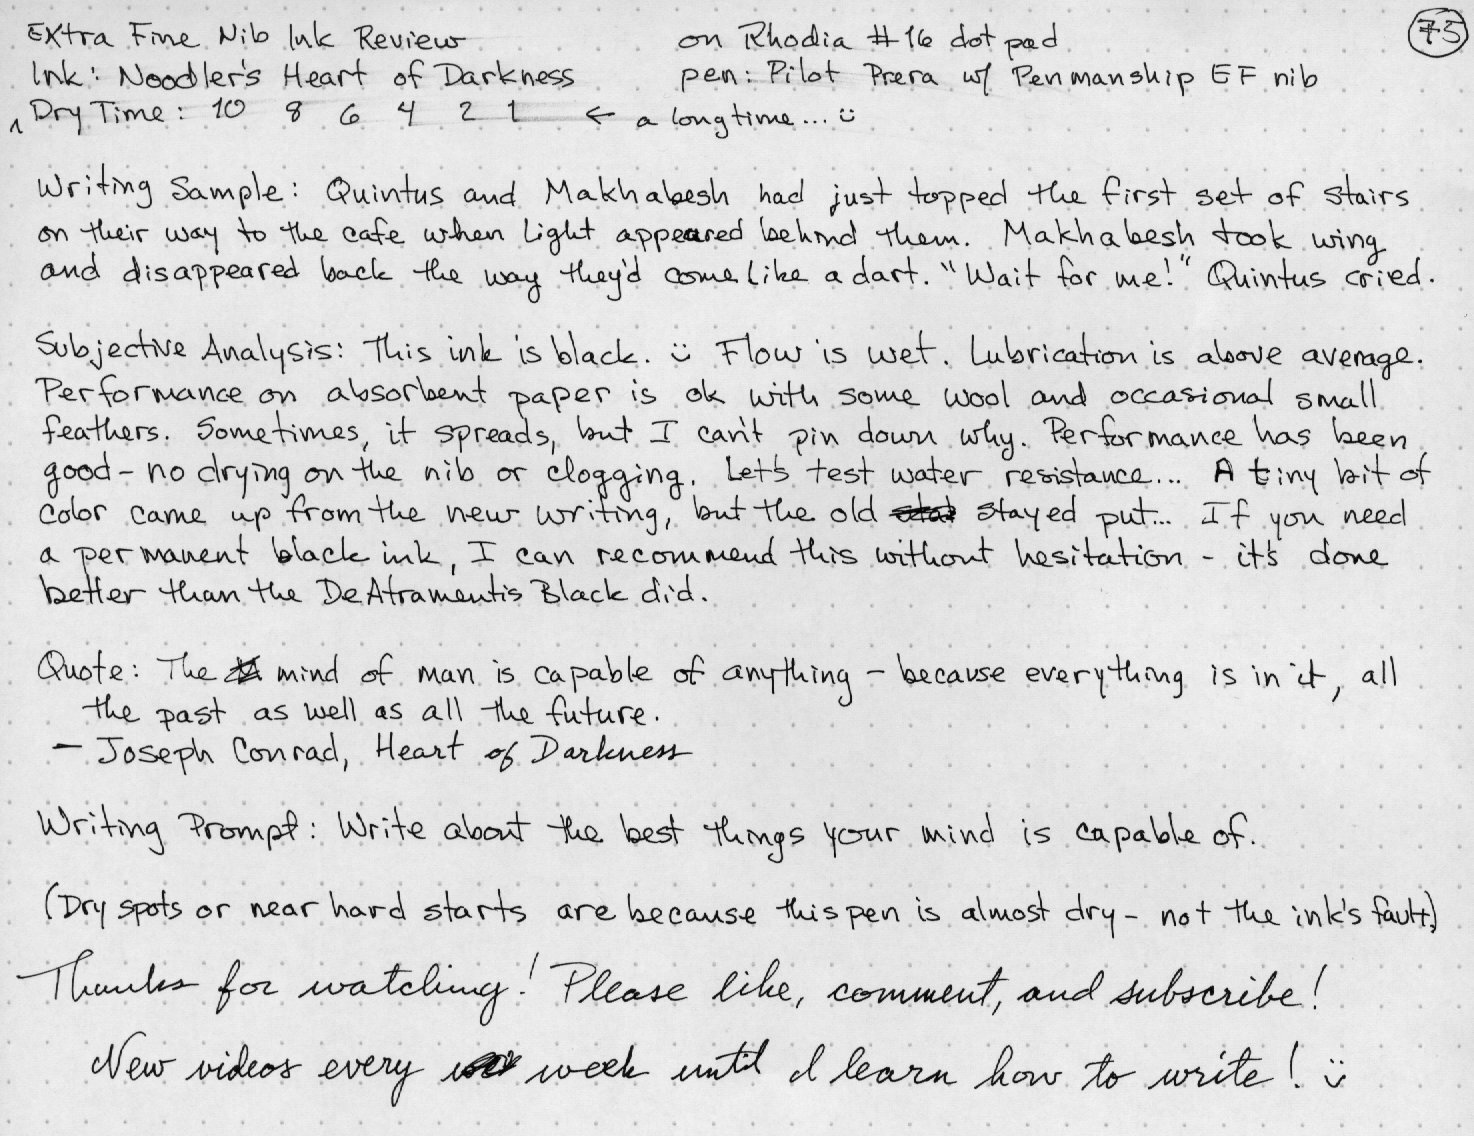 Extra Fine Nib Ink Review on Rhodia #16 dot pad 75
Ink: Noodler's Heart of Darkness pen: Pilot Prera w/ Penmanship EF nib
Dry Time: 10 8 6 4 2 1 ← a long time... :)
Writing Sample: Quintus and Makhabesh had just topped the first set of stairs
on their way to the cafe when light appeared behind them. Makhabesh took wing
and disappeared back the way they'd come like a dart. "Wait for me!" Quintus cried.
Subjective Analysis: This ink is black. :) Flow is wet. Lubrication is above average.
Performance on absorbent paper is ok with some wool and occasional small
feathers. Sometimes, it spreads, but I can't pin down why. Performance has been
good - no drying on the nib or clogging. Let's test water resistance... A tiny bit of
color came up from the new writing, but the old stayed put... If you need
a permanent black ink, I can recommend this without hesitation - it's done
better than the De Atramentis Black did.
Quote: The mind of man is capable of anything - because everything is in it, all
the past as well as all the future.
- Joseph Conrad, Heart of Darkness
Writing Prompt: Write about the best things your mind is capable of.
(Dry spots or near hard starts are because this pen is almost dry - not the ink's fault.)
Thanks for watching! Please like, comment, and subscribe!
New videos every week until I learn how to write! :)